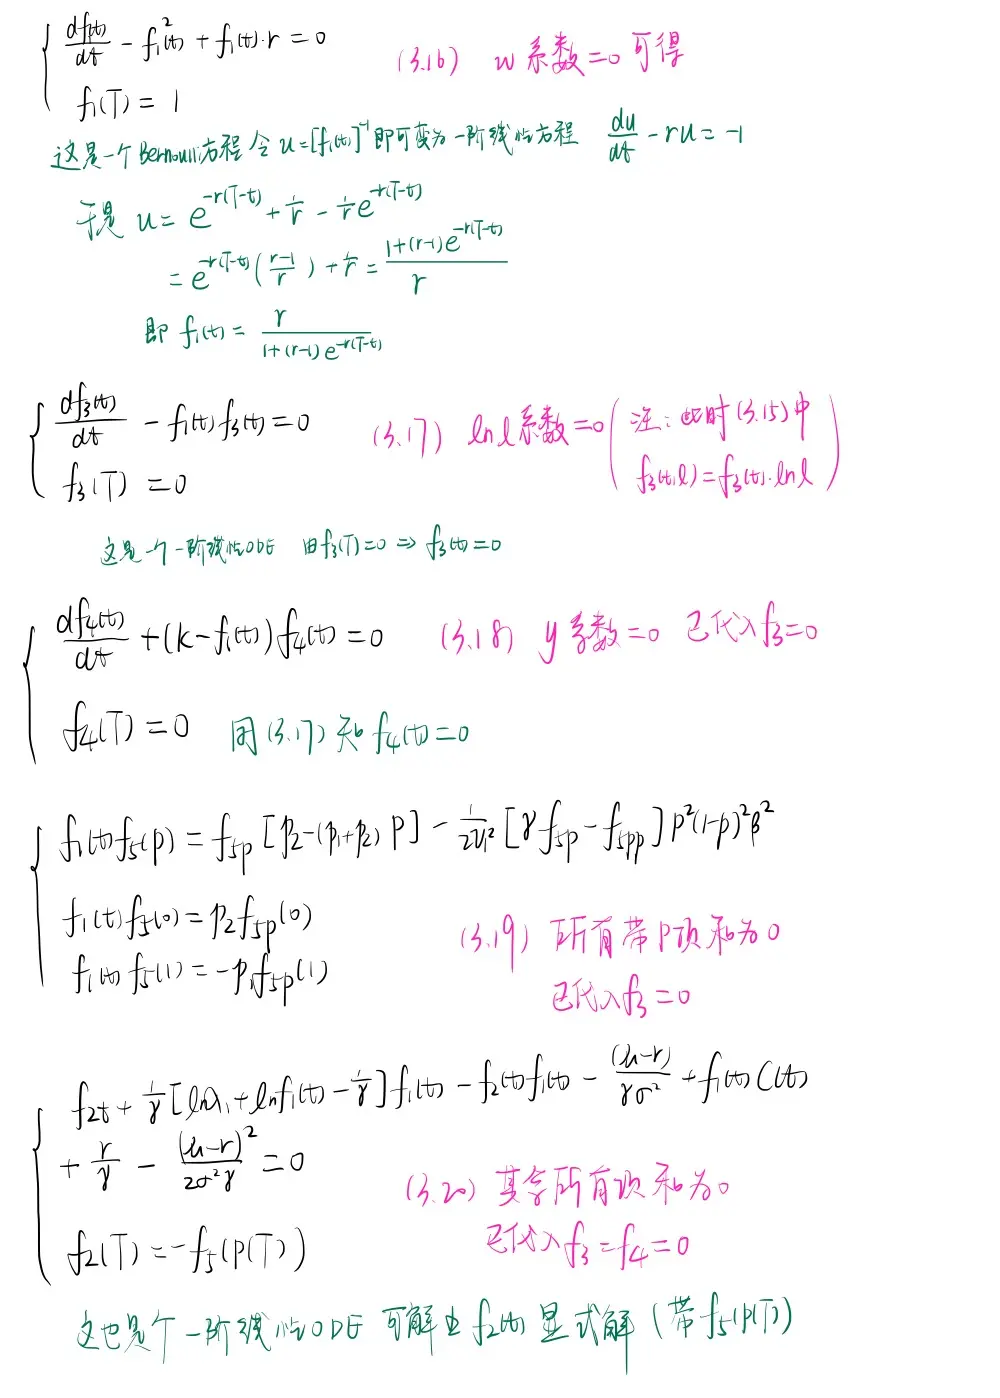 df₁(t)/dt - f₁²(t) + f₁(t)·r = 0
(3.16) w 系数=0 可得
f₁(T) = 1
这是一个Bernoulli方程 令 u=[f₁(t)]⁻¹ 即可变为一阶线性方程 du/dt - ru = -1
于是 u = e^{-r(T-t)} + 1/r - 1/r e^{-r(T-t)}
= e^{-r(T-t)}((r-1)/r) + 1/r = (1+(r-1)e^{-r(T-t)})/r
即 f₁(t) = r/(1+(r-1)e^{-r(T-t)})
df₃(t)/dt - f₁(t)f₃(t) = 0
f₃(T) = 0
(3.17) lnl系数=0 (注:此时(3.15)中
f₃(t,l)=f₃(t)·lnl)
这是一个一阶线性ODE 由f₃(T)=0 ⇒ f₃(t)=0
df₄(t)/dt + (k-f₁(t))f₄(t) = 0
(3.18) y 系数=0 已代入f₃=0
f₄(T) = 0 同(3.17)知 f₄(t)=0
f₁(t)f₅(p) = f₅p [p₂-(p₁+p₂)p] - 1/2v₁² [γf₅p - f₅pp] p²(1-p)²β²
f₁(t)f₅(0) = p₂f₅p(0)
f₁(t)f₅(1) = -p₁f₅p(1)
(3.19) 所有带p项和为0
已代入f₃=0
f₂t + 1/γ[lnλ₁+lnf₁(t)-1/γ]f₁(t) - f₂(t)f₁(t) - (μ-r)/γσ² + f₁(t)C(t)
+ r/γ - (μ-r)²/2σ²γ = 0
(3.20) 其余所有项和为0
已代入f₃=f₄=0
f₂(T) = -f₅(p(T))
这也是个一阶线性ODE 可解出f₂(t)显式解(带f₅(p(T))